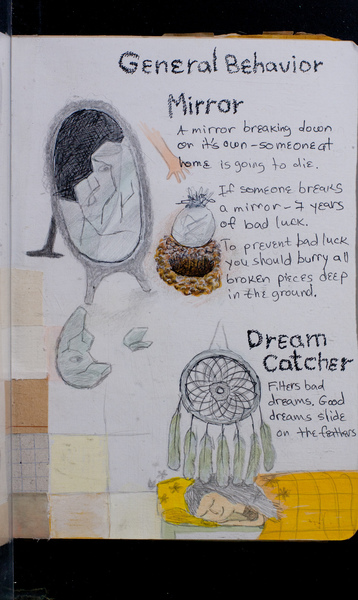 General Behavior
Mirror
A mirror breaking down
on it's own - someone at
home is going to die.
If someone breaks
a mirror - 7 years
of bad luck.
To prevent bad luck
you should burry all
broken pieces deep
in the ground.
Dream
Catcher
Filters bad
dreams. Good
dreams slide
on the feathers